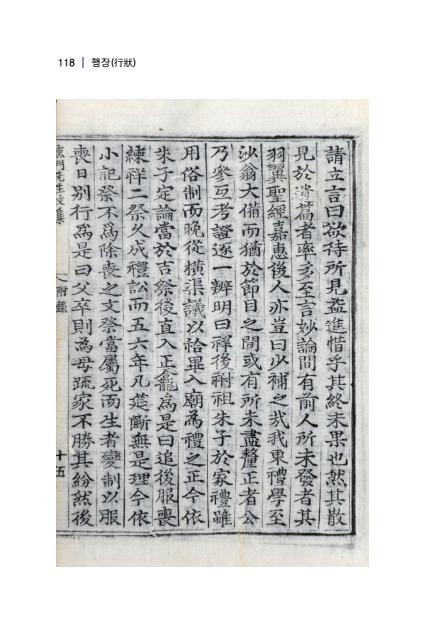 118 | 행장(行狀)
請立言曰欲待所見益進惜乎其終未果也然其散
見於遺篇者率多至言妙論間有前人所未發者其
羽翼聖經嘉惠後人亦豈曰少補之哉我東禮學至
沙翁大備而猶於節目之間或有所未盡釐正者公
乃參互考證逐一辨明曰禫後祔祖朱子於家禮雖
用俗制而晩從橫渠議以祫畢入廟爲禮之正今依
朱子定論當於吉祭後直入正龕爲是曰追後服喪
練祥二祭久成禮訟而五六年凡筵斷無是理今依
小記祭不爲除喪之文祭當屬死而生者變制以服
喪日別行爲是曰父卒則爲母疏家不勝其紛然後
先生文集
附錄
十五